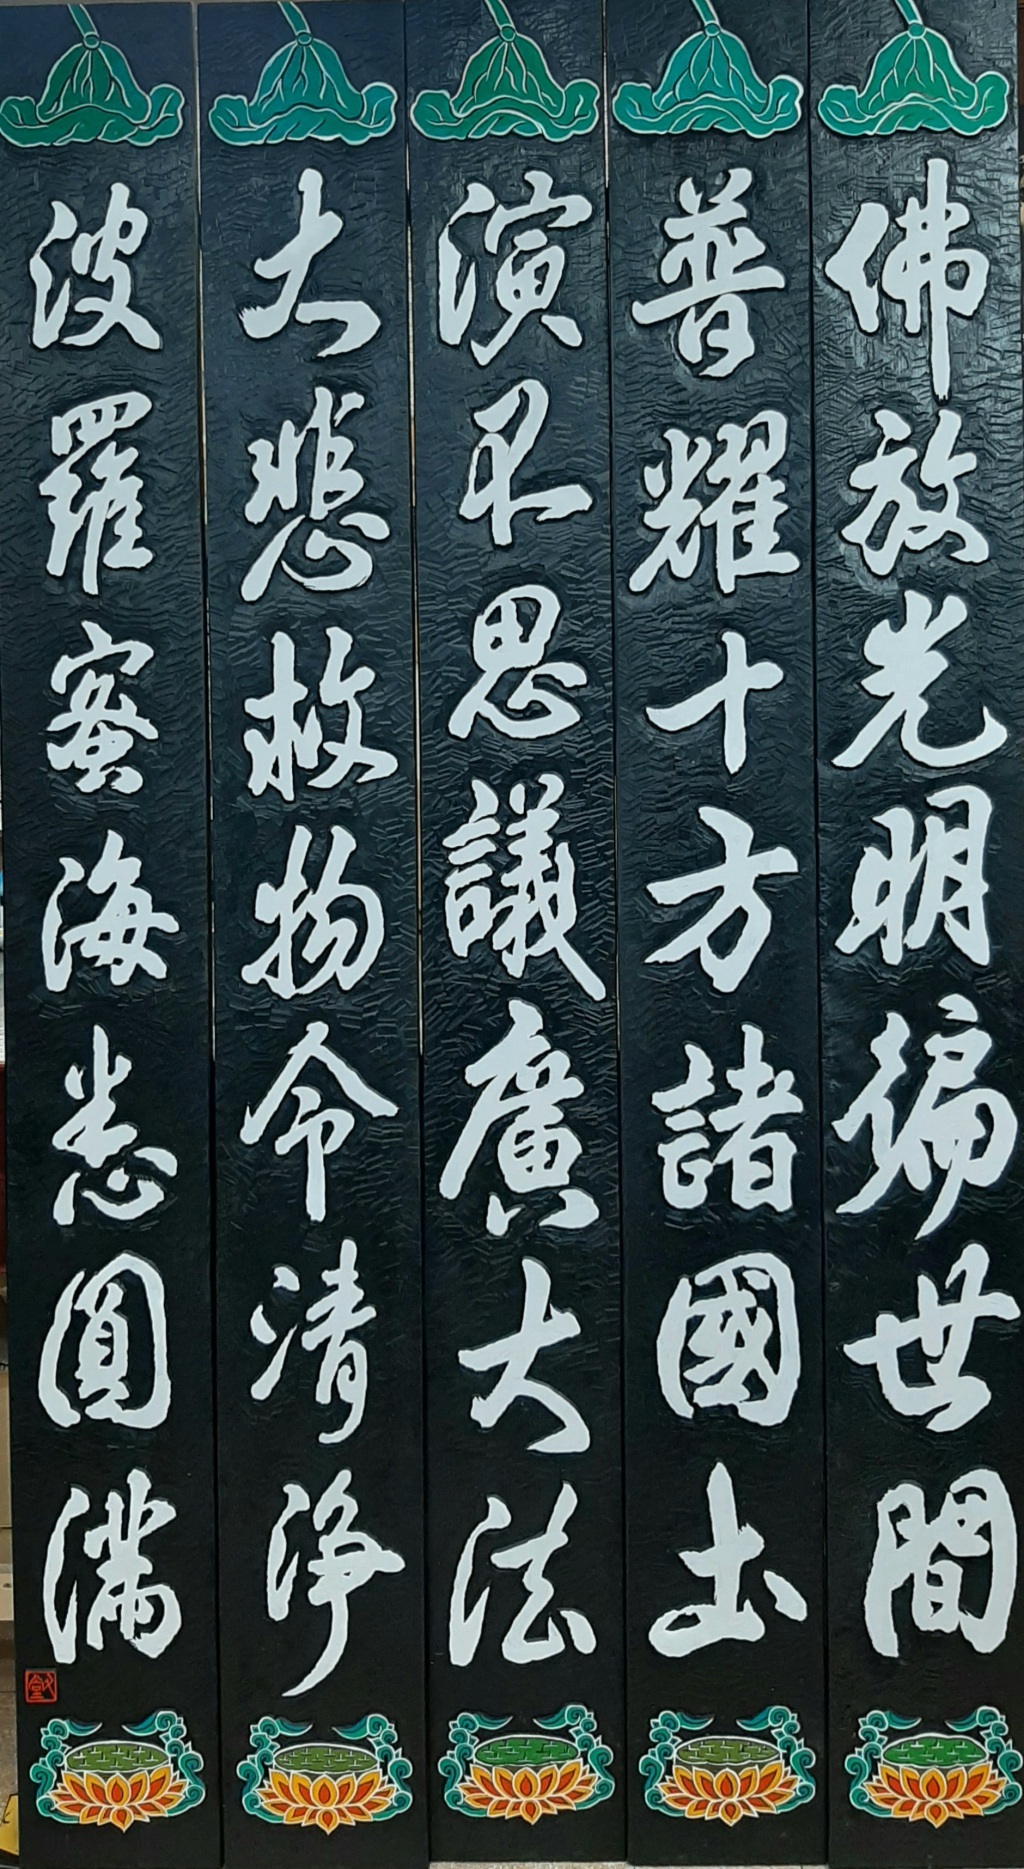 佛放光明徧世間
普耀十方諸國土
演不思議廣大法
大悲救物令清淨
波羅蜜海悉圓滿